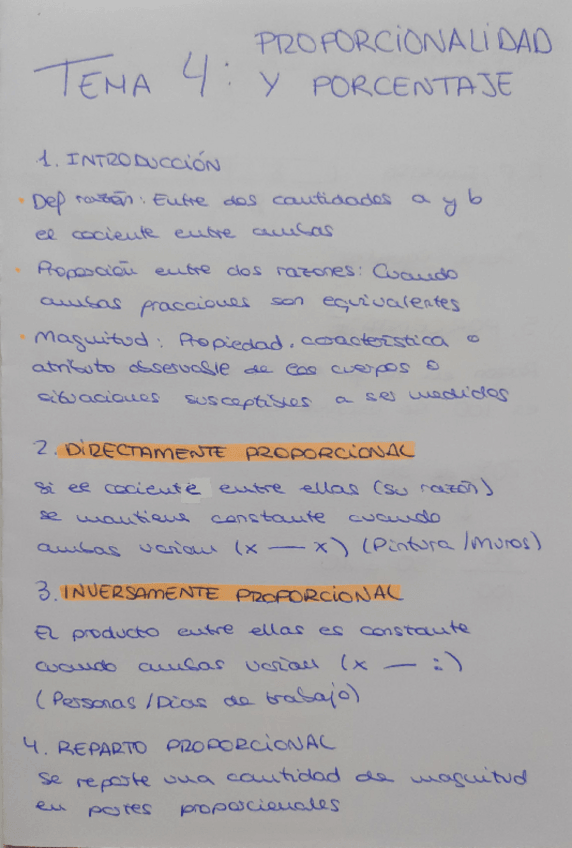 TEMA 4: PROPORCIONALIDAD
Y PORCENTAJE
1. INTRODUCCIÓN
• Def razón: Entre dos cantidades a y b
el cociente entre ambas
• Proporción entre dos razones: Cuando
ambas fracciones son equivalentes
• Magnitud: Propiedad, característica o
atributo observable de los cuerpos o
situaciones susceptibles a ser medidos
2. DIRECTAMENTE PROPORCIONAL
Si el cociente entre ellas (su razón)
se mantiene constante cuando
ambas varian (x — x) (Pintura/Muros)
3. INVERSAMENTE PROPORCIONAL
El producto entre ellas es constante
cuando ambas varian (x — :)
(Personas/Dias de trabajo)
4. REPARTO PROPORCIONAL
Se reparte una cantidad de magnitud
en partes proporcionales